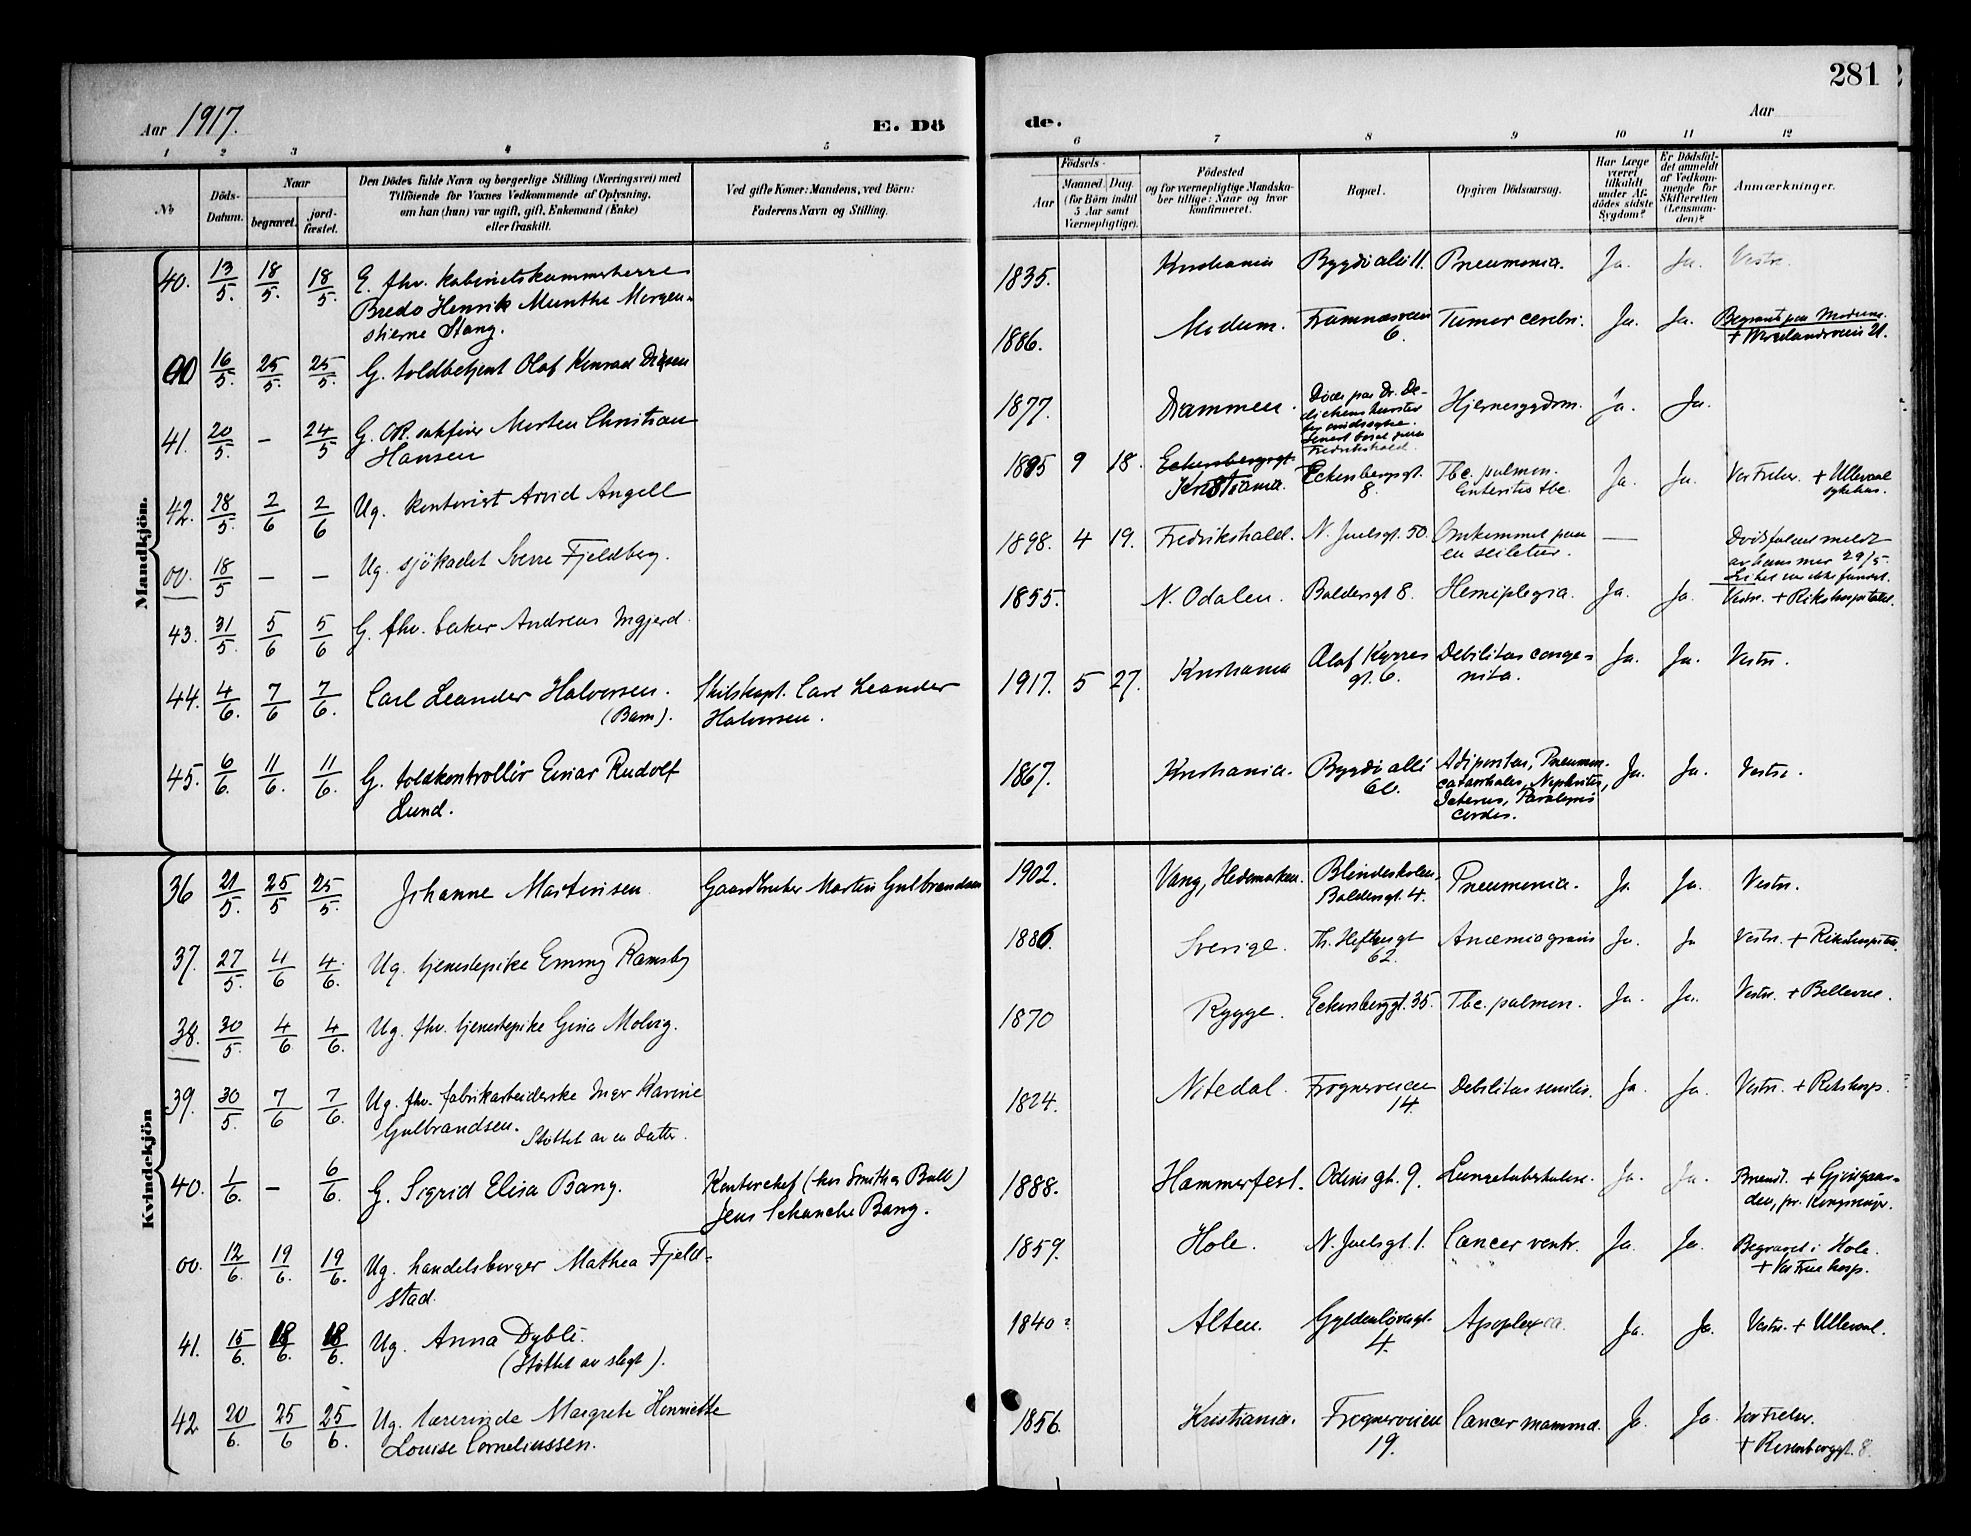 281
Aar 1917.
E. Dö
de.
Aar
1 2 3 4 5 6 7 8 9 10 11 12
No
Döds-
Datum.
Naar
begravet.
jord-
fæstet.
Den Dödes fulde Navn og borgerlige Stilling (Næringsvei) med
Tilföiende for Voxnes Vedkommende af Oplysning,
om han (hun) var ugift, gift, Enkemand (Enke)
eller fraskilt.
Ved gifte Koner: Mandens, ved Börn:
Faderens Navn og Stilling.
Födsels-
Aar
Maaned. Dag.
(for Börn indtil
5 Aar samt
Værnepligtige).
Födested
og for værnepligtige Mandska-
ber tillige: Naar og hvor
konfirmeret.
Bopæl.
Opgiven Dödsaarsag.
Har Læge
været
tilkaldt
under Af-
dödes sidste
Sygdom?
Er Dödsfal-
det anmeldt
af Vedkom-
mende for
Skifteretten
(Lensman-
den)?
Anmærkninger.
Mandkjön.
40. 13/5. 18/5. 18/5. E. fhv. kabinetskammerherre
Bredo Henrik Munthe Morgen-
stierne Stang.
1835. Kristiania Bygdö allé 11. Pneumonia. Ja. Ja. Vestr.
00 16/5. 25/5. 25/5. G. toldbetjent Olaf Konrad
1886. Modum. Framnæsveien
6. Tumor cerebri. Ja. Ja. Begravet paa Modum.
41. 20/5. – 24/5 G. OR. sakförer Morten Christian
Hansen
1877. Drammen. Döde paa Dr. De-
dichens
for sindssyke.
Fredrikshald. Hjernesygdom. Ja. Ja.
42. 28/5. 2/6 2/6 Ug. kontorist Arvid Angell
1895 9 18. Eckersbergsgt.
Kristiania. Eckersbergsgt.
8. Tbc. pulmon.
Enteritis tbc. Ja. Ja. Vor Frelser. + Ullevaal
sykehus.
00. 18/5 – – Ug. sjökadet Sverre Fjeldberg.
1898. 4 19. Fredrikshald. N. Juelsgt. 50. Omkommet paa
en seiletur. — Dödsfaldet meldt
av hans mor 29/5.
Liket er ikke fundet.
43. 31/5. 5/6 5/6 G. fhv. baker Andreas Ingjerd.
1855. N. Odalen. Baldersgt 8. Hemiplegia. Ja. Ja. Vestr. + Rikshospitalet.
44. 4/6. 7/6 7/6. Carl Leander Halvorsen.
(Barn). Skibskapt. Carl Leander
Halvorsen.
1917. 5 27. Kristiania Olaf Kyrres
gt. 6. Debilitas conge-
nita. Ja. Ja. Vestr.
45. 6/6. 11/6. 11/6. G. toldkontrollör Einar Rudolf
Lund.
1867. Kristiania. Bygdö allé
60. Adipositas, Pneumon.
catarrhalis, Nephritis,
Icterus, Paralysis
cordis. Ja. Ja. Vestr.
Kvindekjön
36 21/5. 25/5 25/5. Johanne Martinsen. Gaardbruker Martin Gulbrandsen
1902. Vang, Hedemarken. Blindeskolen,
Baldersgt. 4. Pneumonia. Ja Ja. Vestr.
37. 27/5. 4/6 4/6. Ug. tjenestepike Emmy Ramsby
1886. Sverige. Th. Heftyesgt
62. Anæmia gravis Ja. Ja Vestr. + Rikshospitalet.
38. 30/5. 4/6 4/6. Ug. fhv. tjenestepike Gina Molvig.
1870 Rygge. Eckersbergsgt. 35. Tbc. pulmon. Ja. Ja. Vestr. + Bellevue.
39. 30/5. 7/6 7/6. Ug. fhv. fabrikarbeiderske Inger Karine
Gulbrandsen. Støttet av en datter.
1824. Nitedal. Frognerveien
14. Debilitas senilis. Ja. Ja. Vestr. + Rikshosp.
40. 1/6. – 6/6. G. Sigrid Elisa Bang. Kontorchef (hos Smith & Bull)
Jens Schanche Bang.
1888. Hammerfest. Odins gt. 9. Lungetuberkulose. Ja. Ja. Brændt. +
den, pr. Kongsvinger.
00. 12/6. 19/6. 19/6. Ug. handelsborger Mathea Fjeld-
stad.
1859. Hole. N. Juelsgt. 1. Cancer ventr. Ja. Ja. Begravet i Hole.
+ Vor Frue hosp.
41. 15/6. 18/6. 18/6. Ug. Anna Dybli.
(Støttet av slegt).
1840 Alten. Gyldenløvesgt.
4. Apoplexia. Ja. Ja. Vestr. + Ullevaal.
42 20/6. 25/6 25/6. Ug. lærerinde Margrete Henriette
Louise Corneliussen.
1856. Kristiania. Frognerveien
19. Cancer mamma. Ja. Ja. Vor Frelser.
+ Rosenborggt. 8.